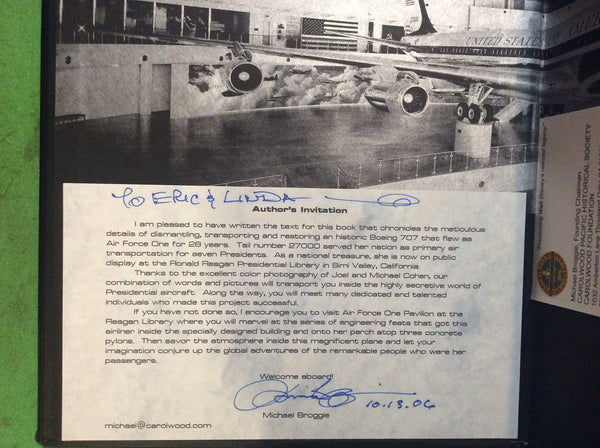 UNITED STATES OF AMERICA
To ERIC & LINDA
Author's Invitation
I am pleased to have written the text for this book that chronicles the meticulous
details of dismantling, transporting and restoring an historic Boeing 707 that flew as
Air Force One for 28 years. Tail number 27000 served her nation as primary air
transportation for seven Presidents. As a national treasure, she is now on public
display at the Ronald Reagan Presidential Library in Simi Valley, California.
Thanks to the excellent color photography of Joel and Michael Cohen, our
combination of words and pictures will transport you inside the highly secretive world of
Presidential aircraft. Along the way, you will meet many dedicated and talented
individuals who made this project successful.
If you have not done so, I encourage you to visit Air Force One Pavilion at the
Reagan Library where you will marvel at the series of engineering feats that got this
airliner inside the specially designed building and onto her perch atop three concrete
pylons. Then savor the atmosphere inside this magnificent plane and let your
imagination conjure up the global adventures of the remarkable people who were her
passengers.
Welcome aboard!
10.13.06
Michael Broggie
michael@carolwood.com
"Preserving Walt Disney's railroad legacy"
Michael Broggie, Founding Chairman
CAROLWOOD PACIFIC HISTORICAL SOCIETY
CAROLWOOD FOUNDATION